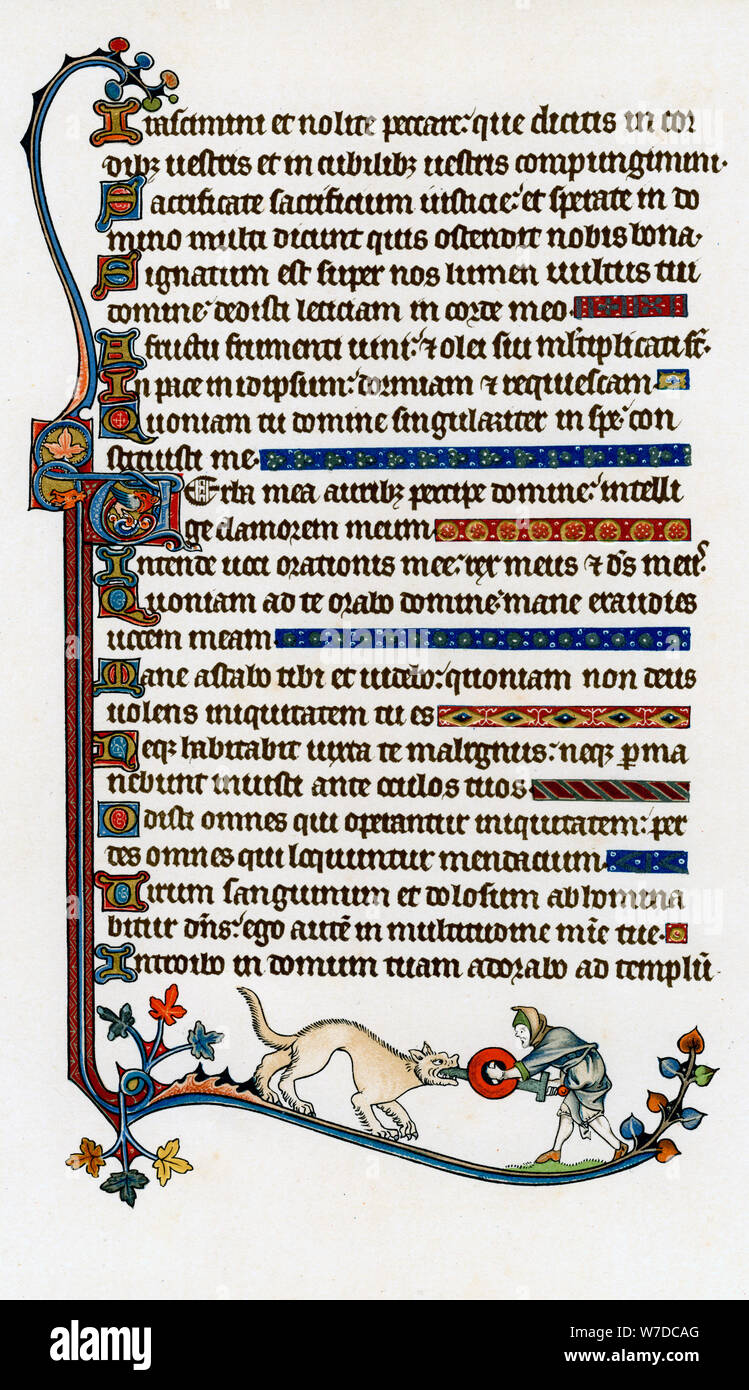 Irascimini et nolite peccare: que dicitis in cor
dibꝫ uestris et in cubilibꝫ uestris compungimini.
Sacrificate sacrificium iusticie: et sperate in do
mino multi dicunt quis ostendit nobis bona.
Signatum est super nos lumen uultus tui
domine: dedisti leticiam in corde meo.
A fructu frumenti uini: ⁊ olei sui ml̄tiplicati st̄.
In pace in idipsum: dormiam ⁊ requiescam.
Quoniam tu domine singulariter in spe: con
stituisti me.
Verba mea auribꝫ percipe domine: intelli
ge clamorem meum.
Intende uoci orationis mee: rex meus ⁊ ds̄ meus.
Quoniam ad te orabo domine: mane exaudies
uocem meam.
Mane astabo tibi et uidebo: quoniam non deus
uolens iniquitatem tu es
Neqꝫ habitabit iuxta te malignus: neqꝫ ꝑma
nebunt iniusti ante oculos tuos.
Odisti omnes qui operantur iniquitatem: per
des omnes qui loquuntur mendacium.
Uirum sanguinum et dolosum abhomina
bitur dn̄s: ego autē in multitudine mīe tue.
Introibo in domum tuam adorabo ad templū
alamy
Image ID: W7DCAG
www.alamy.com